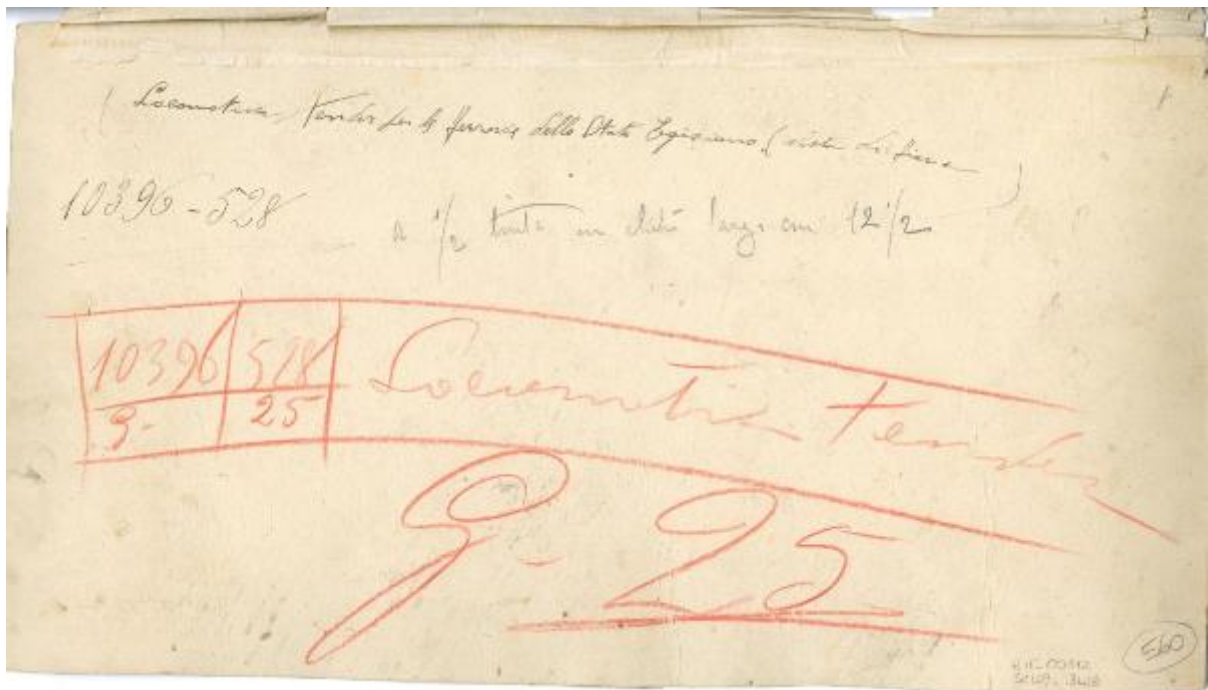 ( Locomotiva Tender per le ferrovie dello Stato Egiziano ( vista di fianco )
10396-528
a 1/2 tinta un cliché largo cm 12 1/2
10396 528 Locomotiva Tender
9- 25
9- 25
560